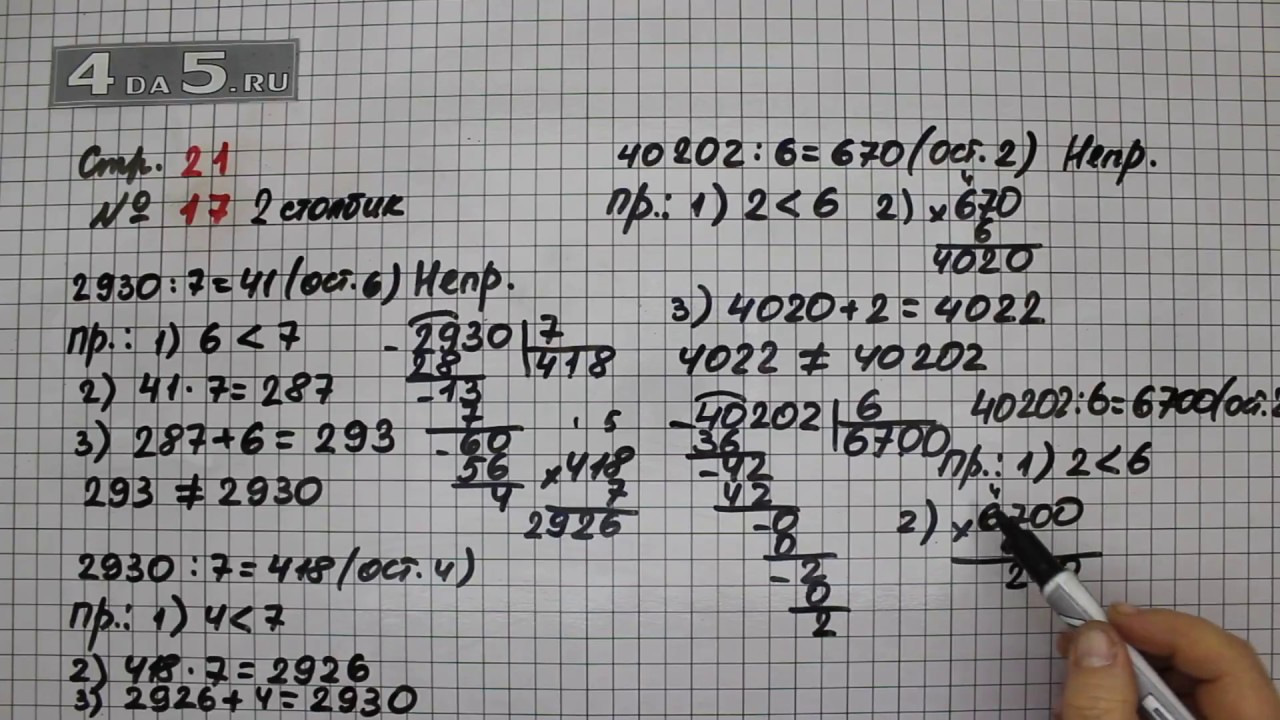 4 DA 5.RU
Стр. 21
№ 17 2 столбик
2930 : 7 = 41 (ост. 6) Непр.
пр.: 1) 6 < 7
2) 41 · 7 = 287
3) 287 + 6 = 293
293 ≠ 2930
- 2930 | 7
28 418
- 13
7
- 60
56
4
1 5
× 418
7
2926
2930 : 7 = 418 (ост. 4)
пр.: 1) 4 < 7
2) 418 · 7 = 2926
3) 2926 + 4 = 2930
40202 : 6 = 670 (ост. 2) Непр.
пр.: 1) 2 < 6 2) × 670
4
6
4020
3) 4020 + 2 = 4022
4022 ≠ 40202
- 40202 | 6
36 6700
- 42
42
- 0
0
- 2
0
2
40202 : 6 = 6700 (ост.
пр.: 1) 2 < 6
4
2) × 6700